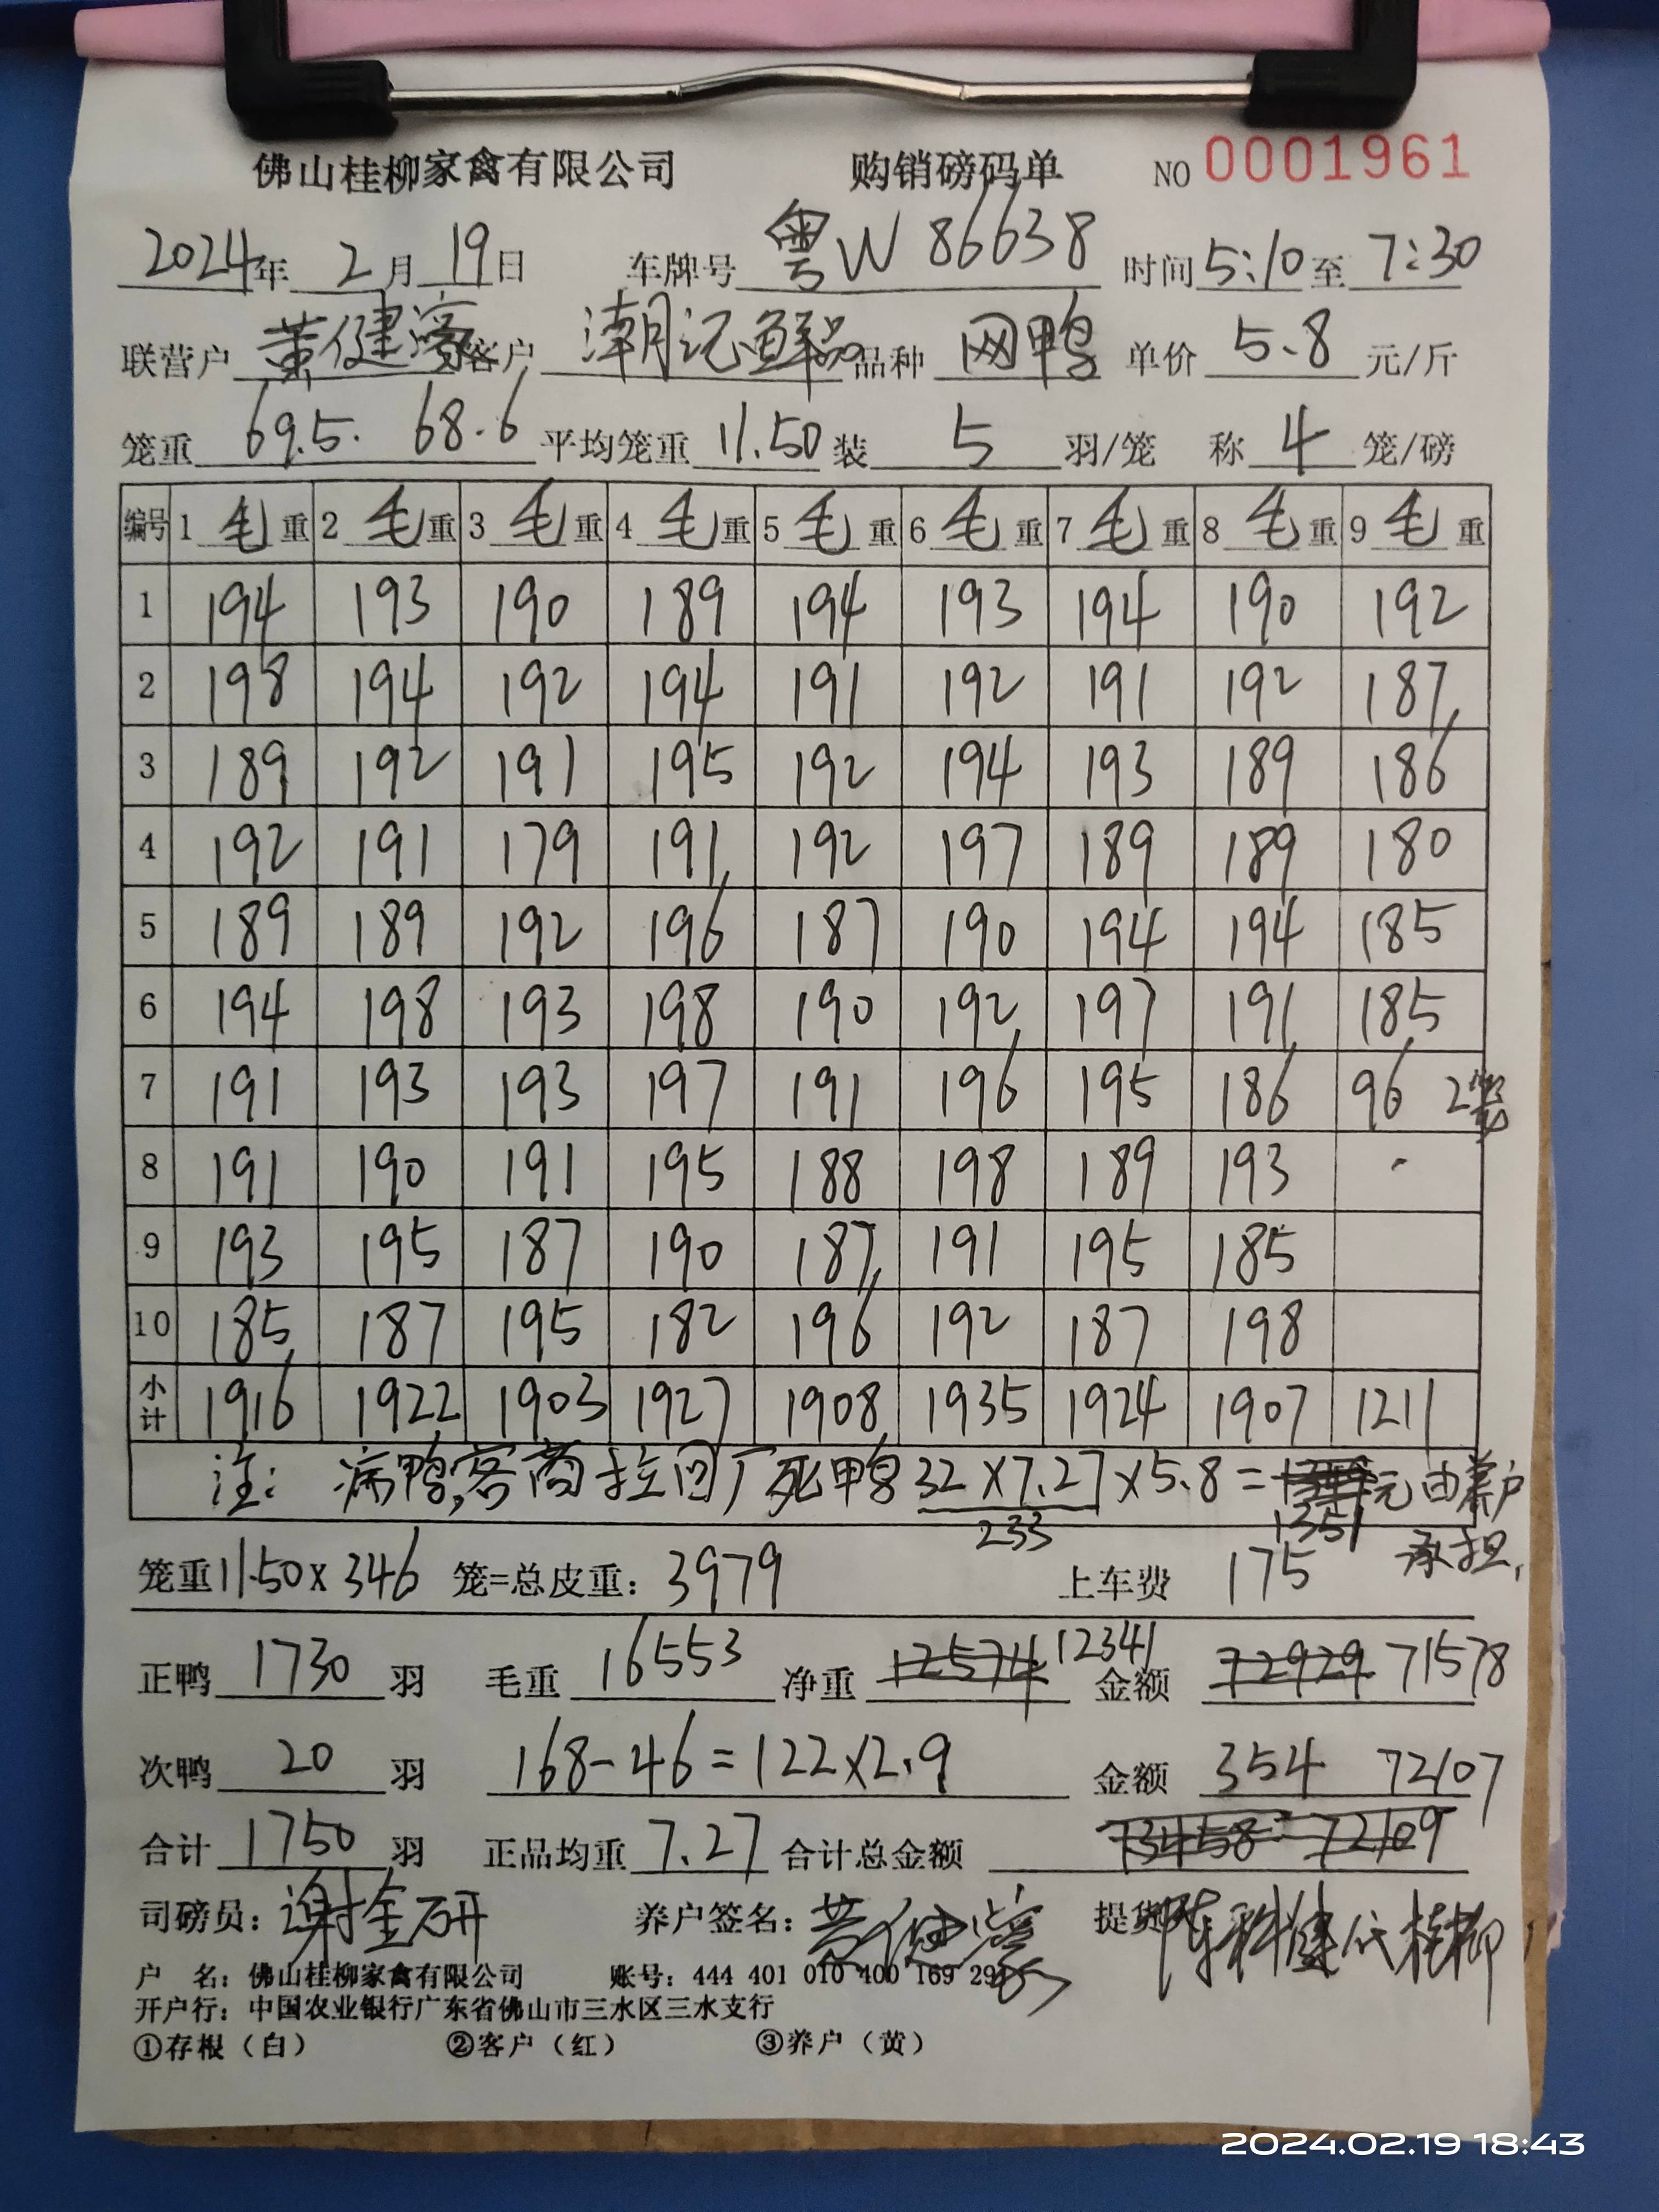 佛山桂柳家禽有限公司 购销磅码单 NO 0001961
2024年 2月 19日 车牌号 粤W 86638 时间 5:10 至 7:30
联营户 黄健濠 客户 潮记鲜品 品种 网鸭 单价 5.8 元/斤
笼重 69.5. 68.6 平均笼重 11.50 装 5 羽/笼 称 4 笼/磅
编号 1 毛重 2 毛重 3 毛重 4 毛重 5 毛重 6 毛重 7 毛重 8 毛重 9 毛重
1 194 193 190 189 194 193 194 190 192
2 198 194 192 194 191 192 191 192 187
3 189 192 191 195 192 194 193 189 186
4 192 191 179 191 192 197 189 189 180
5 189 189 192 196 187 190 194 194 185
6 194 198 193 198 190 192 197 191 185
7 191 193 193 197 191 196 195 186 96 2笼
8 191 190 191 195 188 198 189 193
9 193 195 187 190 187 191 195 185
10 185 187 195 182 196 192 187 198
小计 1916 1922 1903 1927 1908 1935 1924 1907 1211
注: 病鸭,客商拉回厂死鸭 32×7.27×5.8= 元由养户
233 1351 承担,
笼重 11.50×346 笼=总皮重: 3979 上车费 175
正鸭 1730 羽 毛重 16553 净重 12574 12341 金额 72929 71578
次鸭 20 羽 168-46=122×2.9 金额 354 72107
合计 1750 羽 正品均重 7.27 合计总金额 73458 72109
司磅员: 谢金研 养户签名: 黄健濠 提货 陈科健代桂柳
户 名: 佛山桂柳家禽有限公司 账号: 444 401 010 400 169 29
开户行: 中国农业银行广东省佛山市三水区三水支行
①存根(白) ②客户(红) ③养户(黄)
2024.02.19 18:43